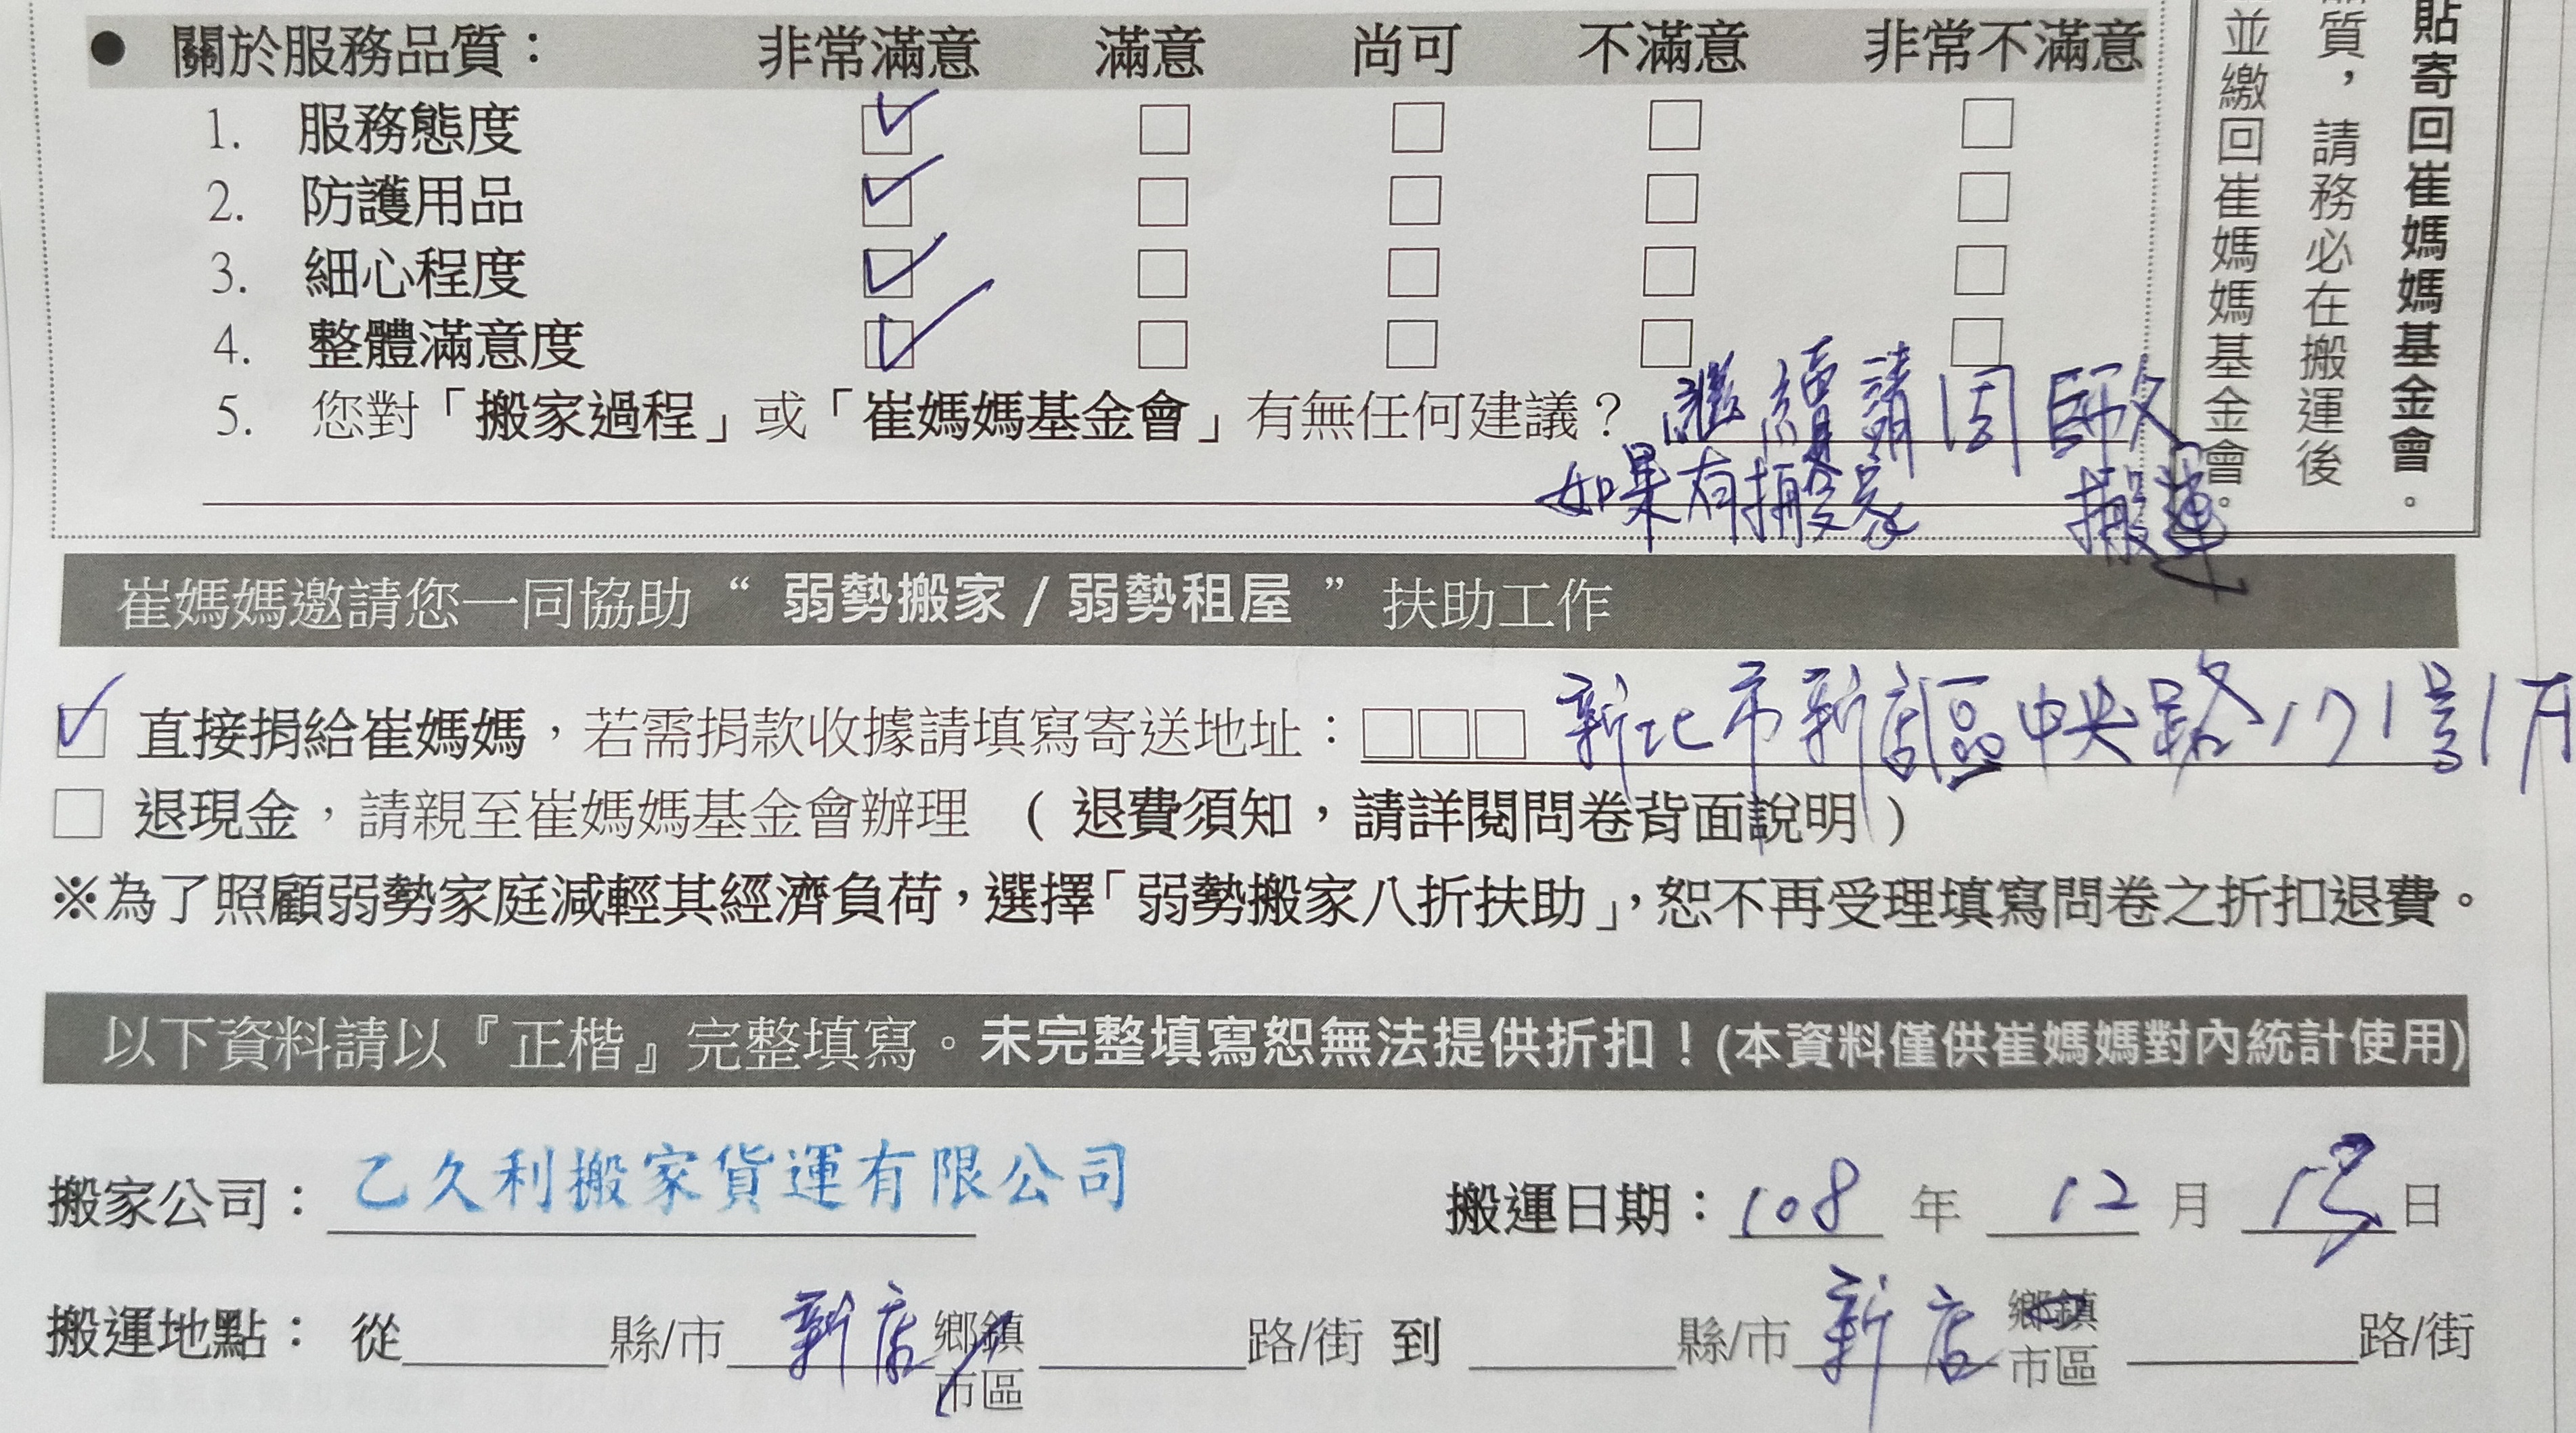 ● 關於服務品質： 非常滿意 滿意 尚可 不滿意 非常不滿意
1. 服務態度 ☑ □ □ □ □
2. 防護用品 ☑ □ □ □ □
3. 細心程度 ☑ □ □ □ □
4. 整體滿意度 ☑ □ □ □ □
5. 您對「搬家過程」或「崔媽媽基金會」有無任何建議？ 繼續請周師父
如果有搬家 搬運
貼寄回崔媽媽基金會。
品質，請務必在搬運後
並繳回崔媽媽基金會。
崔媽媽邀請您一同協助“弱勢搬家/弱勢租屋”扶助工作
☑ 直接捐給崔媽媽，若需捐款收據請填寫寄送地址：□□□ 新北市新店區中央路171號1
□ 退現金，請親至崔媽媽基金會辦理 （退費須知，請詳閱問卷背面說明）
※為了照顧弱勢家庭減輕其經濟負荷，選擇「弱勢搬家八折扶助」，恕不再受理填寫問卷之折扣退費。
以下資料請以『正楷』完整填寫。未完整填寫恕無法提供折扣！(本資料僅供崔媽媽對內統計使用)
搬家公司：乙久利搬家貨運有限公司 搬運日期：108 年 12 月 日
搬運地點：從 縣/市 新店 鄉鎮市區 路/街 到 縣/市 新店 鄉鎮市區 路/街